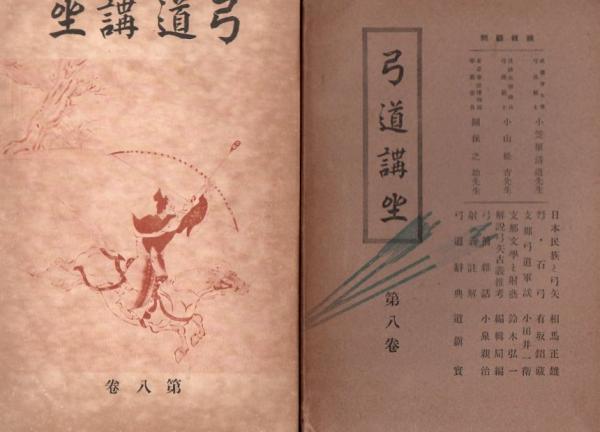 弓道講坐
第八卷
弓道講坐
第八卷
小笠原清道先生
小山松吉先生
關保之助先生
日本民族と弓矢 相馬正雄
弩・石弓 有坂鉊藏
支那弓道軍談 小田井一衛
支那文學と射藝 鈴木弘一
解說弓矢古義推考 編輯局編
弓術雜話 小泉親治
射義註解
弓道辭典 道